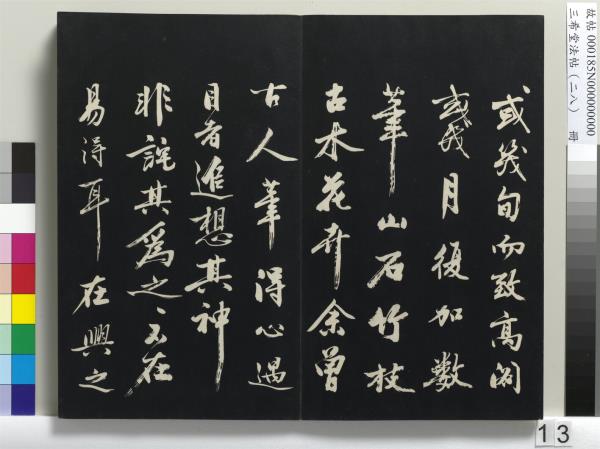 故帖 000185N000000000 冊
三希堂法帖（二八）
或幾旬而致高閣
或幾月復加數
筆山石竹枝
古木花卉余曾
古人筆得心遇
目者追想其神
非詫其為之〻不在
易得耳在興之
13